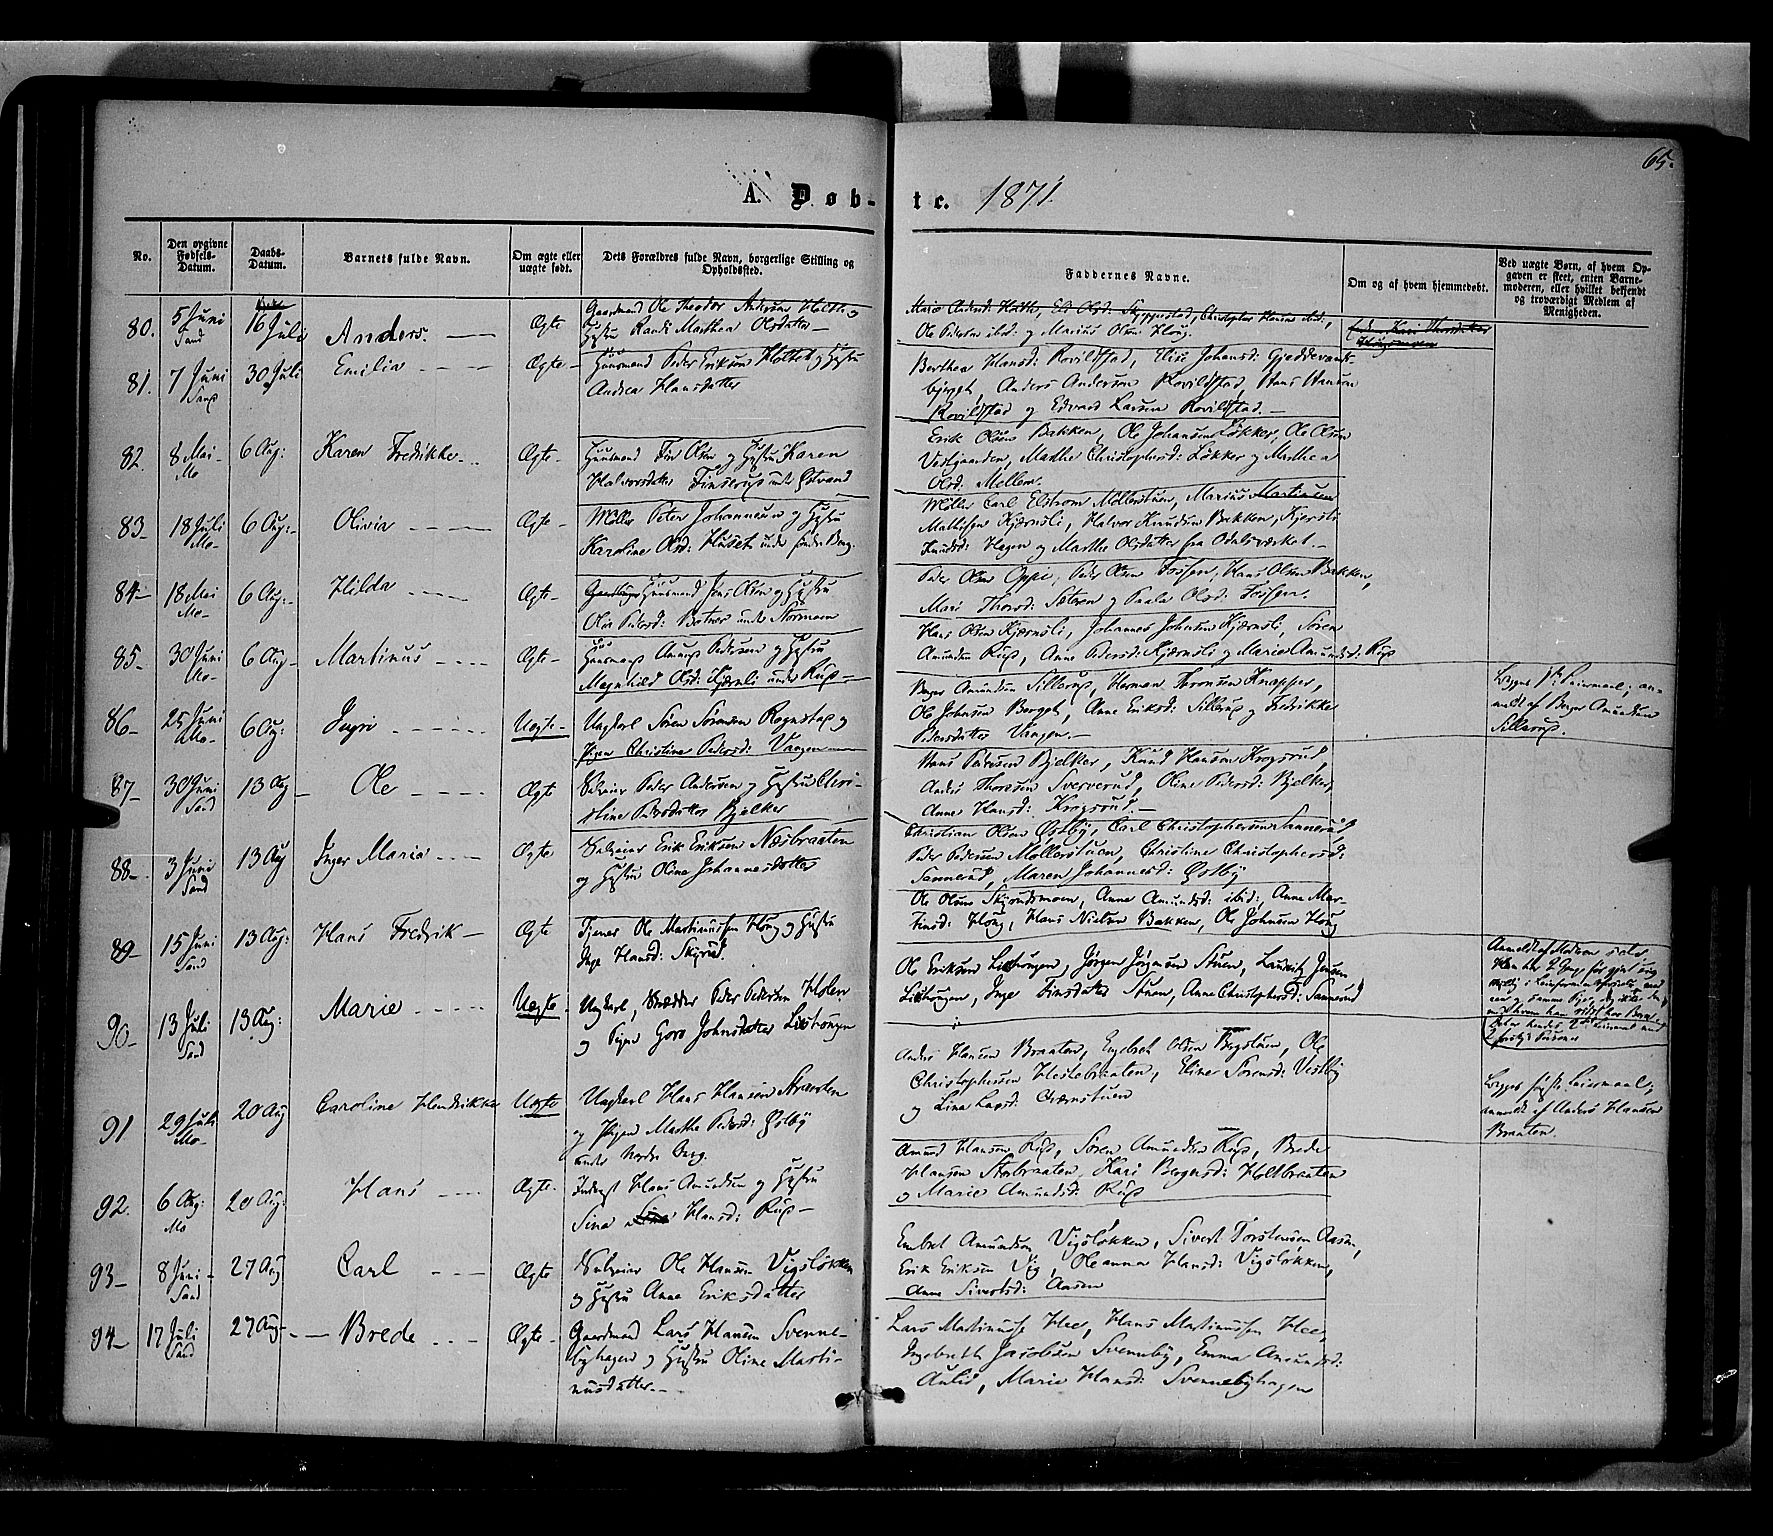 65.
A. Døb-
te. 1871.
No.
Den opgivne Fødsels-Datum.
Daabs-Datum.
Barnets fulde Navn.
Om ægte eller uægte født.
Dets Forældres fulde Navn, borgerlige Stilling og Opholdssted.
Faddernes Navne.
Om og af hvem hjemmedøbt.
Ved uægte Børn, af hvem Opgaven er skeet, enten Barnemoderen, eller hvilket bekjendt og troværdigt Medlem af Menigheden.
80. 5 Juni Sand 16 Juli Anders. Ægte
Gaardmand Ole Theodor Andersen Holthe og
Hustru Randi Marthea Olsdatter
Ole Pedersen ibid: og Marius Olsen Houg.
81. 7 Juni Sand 30 Juli Emilia Ægte
Huusmand Peder Eriksen Holthe og Hustru
Andrea Hansdatter
Berthea Hansd: Rovildstad, Elise Johansd: Gjeddevands-
bjerget, Anders Andersen Rovildstad, Hans Hansen
Rovildstad og Edvard Larsen Rovildstad.
82. 8 Mai Mo 6 Aug: Karen Fredrikke Ægte
Huusmand Fin Olsen og Hustru Karen
Halvorsdatter Finserup
Erik Olsen Bakken, Ole Johansen Løkker, Ole Olsen
Vestgaarden, Marthe Christophersd: Løkker og Marthea
Olsd: Mellem.
83 18 Juli Mo 6 Aug: Olivia Ægte
Møller Peter Johannesen og Hustru
Karoline Olsd: Huset under
Møller Carl Elstrøm Møllerstuen, Marius
Mathisen Kjærnsli, Halvor Knudsen Bakken, Kjersti
Knudsd: Hagen og Marthe Olsdatter fra Odalsværket.
84 18 Mai Mo 6 Aug: Hilda Ægte
Huusmand Jens Olsen og Hustru
Olea Pedersd: Botner under Stormoen
Peder Olsen Oppi, Peder Olsen Fossen, Hans Olsen Bakken,
Mari Thorsd: Sæteren og Paula Olsd: Fossen.
85 30 Juni Mo 6 Aug Martinus Ægte
Huusmand Amund Pedersen og Hustru
Magnhild Olsd: Kjærnsli under Rud
Hans Olsen Kjærnsli, Johannes Johnsen Kjærnsli, Søren
Amundsen Rud, Anne Pedersd: Kjærnsli og Marie Amundsd: Rud
86 25 Juni Mo 6 Aug: Ingri Uægte
Ungkarl Søren Sørensen Rognstad og
Pigen Christine Pedersd: Vangen
Berger Amundsen Sillerud, Herman Thronsen Knapper,
Ole Johnsen Berget, Anne Eriksd: Sillerud og Fredrikke
Pedersdatter Vangen.
Begges 1ste Leiermaal; an-
meldt af Berger Amundsen
Sillerud.
87 30 Juni Sand 13 Aug Ole Ægte
Selveier Peder Andersen og Hustru Chri-
stine Pedersdatter Bjelker
Hans Pedersen Bjelker, Knud Hansen Krogsrud,
Anders Thoresen Sververud, Oline Pedersd: Bjelker,
Anne Hansd: Krogsrud.
88 3 Juni Sand 13 Aug Inger Marie Ægte
Selveier Erik Eriksen Næsbraaten
og Hustru Oline Johannesdatter
Christian Olsen Østby, Carl Christophersen Sannerud,
Peder Pedersen Møllerstuen, Christine Christophersd:
Sannerud, Maren Johannesd: Østby
89 15 Juni Sand 13 Aug: Hans Fredrik Ægte
Tjener Ole Martinussen Houg og Hustru
Inge Hansd: Skjerud.
Ole Olsen Skjøndsmoen, Anne Amundsd: ibid:, Anne Mar-
tinsd: Houg, Hans Nielsen Bakken, Ole Johnsen Houg
90 13 Juli Sand 13 Aug: Marie Uægte
Ungkarl, Skrædder Peder Pedersen Holen
og Pigen Goro Johnsdatter Listrongen
Ole Eriksen Listrongen, Jørgen Jørgensen Stuen, Laurits Jensen
Listrongen, Inge Finsdatter Stuen, Anne Christophersd: Sannerud
Anmeldt af Moderen selv.
91 29 Juli Mo 20 Aug Caroline Hendrikke Uægte
Ungkarl Hans Hansen Straaten
og Pigen Marthe Pedersd: Østby
under Nordre Berg.
Anders Hansen Braaten, Engebret Olsen Bergstuen, Ole
Christophersen Hestebraaten, Eline Sørensd: Vestby
og Lina Larsd: Chærnstuen
Begges første Leiermaal;
anmeldt af Anders Hansen
Braaten.
92. 6 Aug: Mo 20 Aug: Hans Ægte
Inderst Hans Amundsen og Hustru
Sina Hansd: Rud
Amund Hansen Rud, Søren Amundsen Rud, Brede
Hansen Storbraaten, Kari Bergersd: Holtbraaten
og Marie Amundsd: Rud
93 8 Juni Sand 27 Aug Carl Ægte
Selveier Ole Hansen Vigsløkken
og Hustru Anne Eriksdatter
Embret Amundsen Vigsløkken, Sivert Torstensen Aasen,
Erik Eriksen Vig, Oleanna Hansd: Vigsløkken,
Anne Sivertsd: Aasen
94 17 Juli Sand 27 Aug Brede Ægte
Gaardmand Lars Hansen Svenne-
byhagen og Hustru Oline Marti-
nusdatter
Lars Martinusse Hee, Hans Martinussen Hee,
Ingebreth Jacobsen Svenneby, Emma Amundsd:
Aulid, Marie Hansd: Svennebyhagen